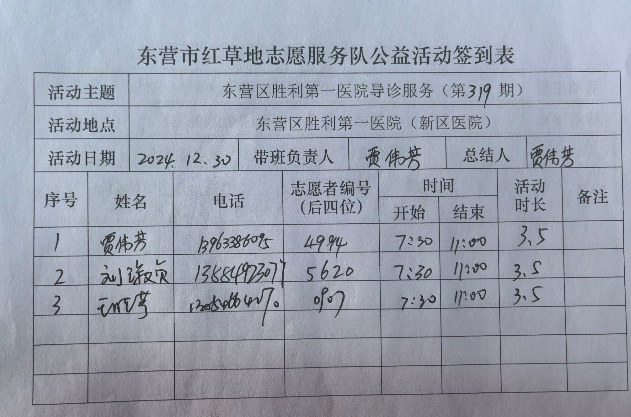 东营市红草地志愿服务队公益活动签到表
活动主题 东营区胜利第一医院导诊服务（第319期）
活动地点 东营区胜利第一医院（新区医院）
活动日期 2024.12.30 带班负责人 贾伟芳 总结人 贾伟芳
序号 姓名 电话 志愿者编号（后四位） 时间 开始 结束 活动时长 备注
1 贾伟芳 13963386095 4994 7:30 11:00 3.5
2 5620 7:30 11:00 3.5
3 0907 7:30 11:00 3.5